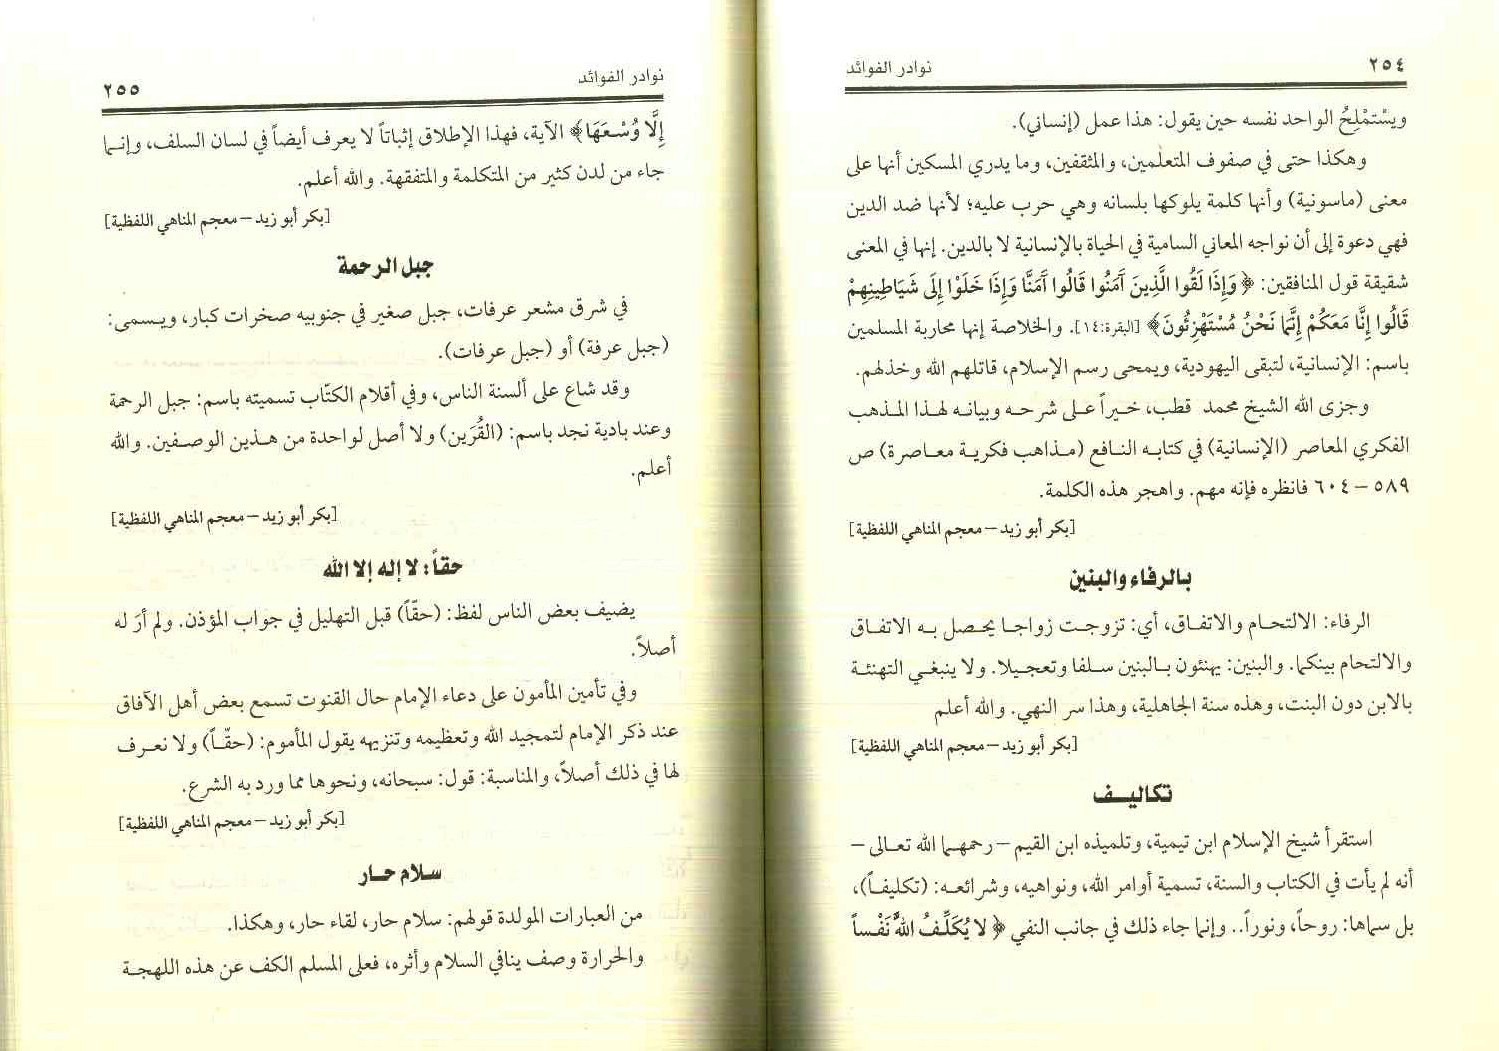 ٢٥٤ نوادر الفوائد
ويسْتمْلِحُ الواحد نفسه حين يقول: هذا عمل (إنساني).
وهكذا حتى في صفوف المتعلمين، والمثقفين، وما يدري المسكين أنها على
معنى (ماسونية) وأنها كلمة يلوكها بلسانه وهي حرب عليه؛ لأنها ضد الدين
فهي دعوة إلى أن نواجه المعاني السامية في الحياة بالإنسانية لا بالدين. إنها في المعنى
شقيقة قول المنافقين: ﴿ وَإِذَا لَقُوا الَّذِينَ آمَنُوا قَالُوا آمَنَّا وَإِذَا خَلَوْا إِلَى شَيَاطِينِهِمْ
قَالُوا إِنَّا مَعَكُمْ إِنَّمَا نَحْنُ مُسْتَهْزِئُونَ﴾ [البقرة:١٤]. والخلاصة إنها محاربة المسلمين
باسم: الإنسانية، لتبقى اليهودية، ويمحى رسم الإسلام، قاتلهم الله وخذلهم.
وجزى الله الشيخ محمد قطب، خيراً على شرحه وبيانه لهذا المذهب
الفكري المعاصر (الإنسانية) في كتابه النافع (مذاهب فكرية معاصرة) ص
٥٨٩ – ٦٠٤ فانظره فإنه مهم. واهجر هذه الكلمة.
[بكر أبو زيد – معجم المناهي اللفظية]
بالرفاء والبنين
الرفاء: الالتحام والاتفاق، أي: تزوجت زواجا يحصل به الاتفاق
والالتحام بينكما. والبنين: يهنئون بالبنين سلفا وتعجيلا. ولا ينبغي التهنئة
بالابن دون البنت، وهذه سنة الجاهلية، وهذا سر النهي. والله أعلم
[بكر أبو زيد – معجم المناهي اللفظية]
تكاليف
استقرأ شيخ الإسلام ابن تيمية، وتلميذه ابن القيم – رحمهما الله تعالى –
أنه لم يأت في الكتاب والسنة، تسمية أوامر الله، ونواهيه، وشرائعه: (تكليفاً)،
بل سماها: روحاً، ونوراً.. وإنما جاء ذلك في جانب النفي ﴿ لا يُكَلِّفُ اللهُ نَفْساً
نوادر الفوائد ٢٥٥
إِلَّا وُسْعَهَا﴾ الآية، فهذا الإطلاق إثباتاً لا يعرف أيضاً في لسان السلف، وإنما
جاء من لدن كثير من المتكلمة والمتفقهة. والله أعلم.
[بكر أبو زيد – معجم المناهي اللفظية]
جبل الرحمة
في شرق مشعر عرفات، جبل صغير في جنوبيه صخرات كبار، ويسمى:
(جبل عرفة) أو (جبل عرفات).
وقد شاع على ألسنة الناس، وفي أقلام الكتّاب تسميته باسم: جبل الرحمة
وعند بادية نجد باسم: (القُرَين) ولا أصل لواحدة من هذين الوصفين. والله
أعلم.
[بكر أبو زيد – معجم المناهي اللفظية]
حقاً: لا إله إلا الله
يضيف بعض الناس لفظ: (حقّاً) قبل التهليل في جواب المؤذن. ولم أرَ له
أصلاً.
وفي تأمين المأمون على دعاء الإمام حال القنوت تسمع بعض أهل الآفاق
عند ذكر الإمام لتمجيد الله وتعظيمه وتنزيهه يقول المأموم: (حقّاً) ولا نعرف
لها في ذلك أصلاً، والمناسبة: قول: سبحانه، ونحوها مما ورد به الشرع.
[بكر أبو زيد – معجم المناهي اللفظية]
سلام حار
من العبارات المولدة قولهم: سلام حار، لقاء حار، وهكذا.
والحرارة وصف ينافي السلام وأثره، فعلى المسلم الكف عن هذه اللهجة